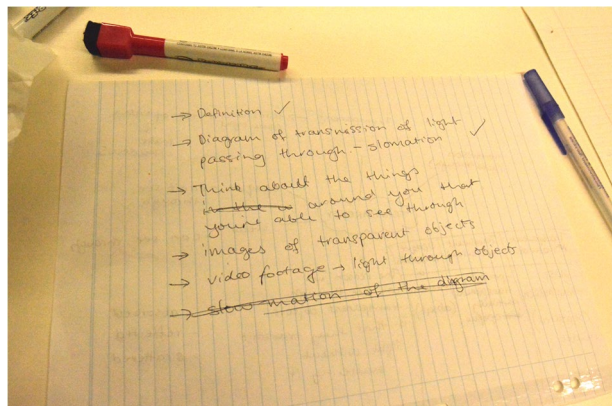 → Definition ✓
→ Diagram of transmission of light
passing through - slomation ✓
→ Think about the things
around you that
you're able to see through
→ images of transparent objects
→ video footage → light through objects
→ slow mation of the digram